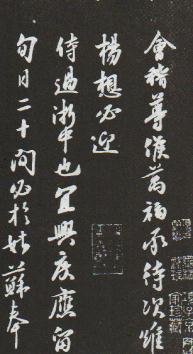 會稽尊候萬福承待次維
揚想必迎
侍過浙中也宜興度應留
旬日二十間必於姑蘇奉